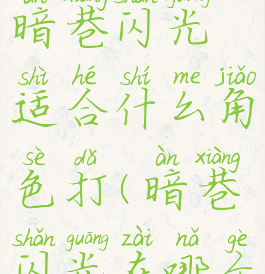 àn xiàng shǎn guāng
暗巷闪光
shì hé shí me jiǎo
适合什么角
sè dǎ àn xiàng
色打(暗巷
shǎn guāng zài nǎ gè
闪光在哪个